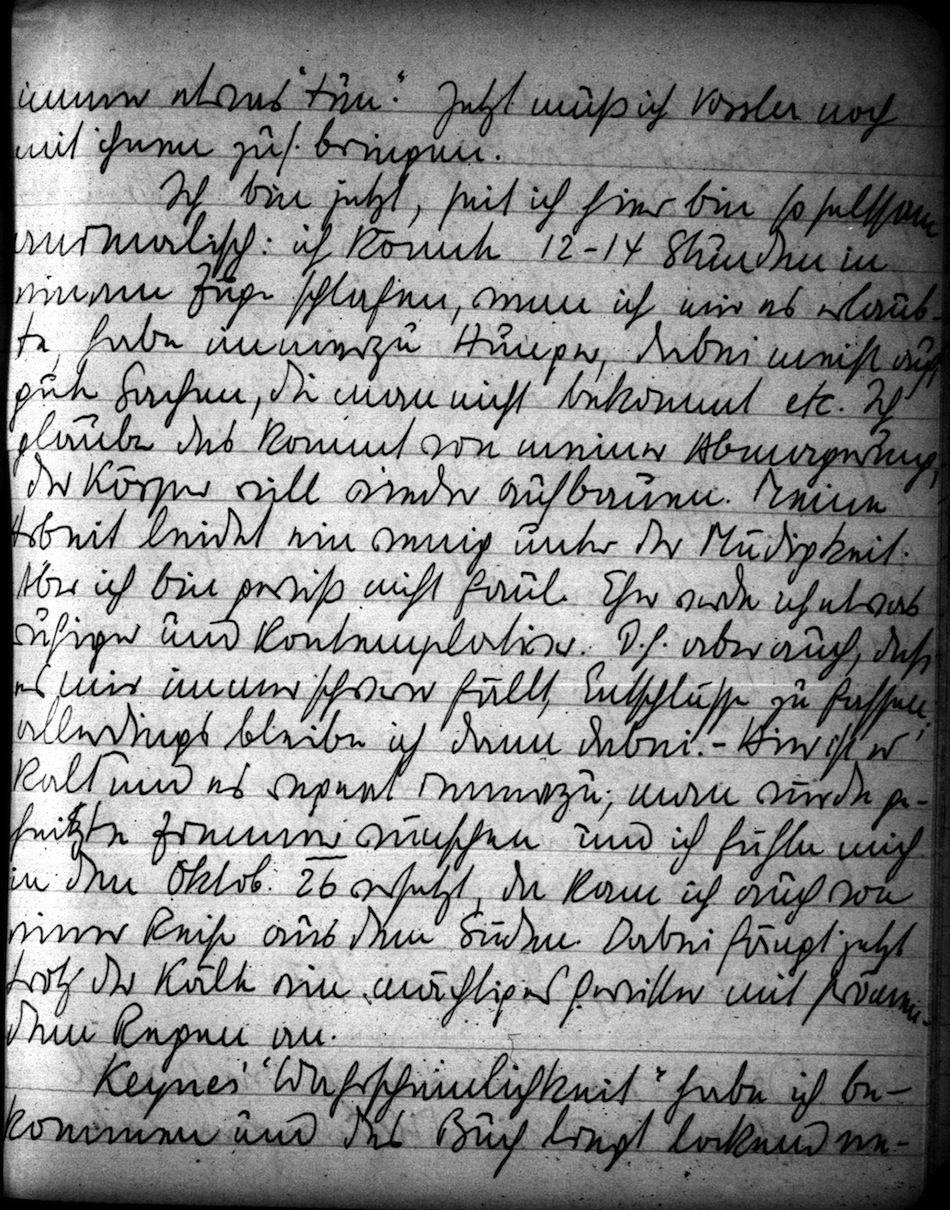 immer etwas "tun." Jetzt muß ich Vossler noch
mit ihnen zus. bringen.
Ich bin jetzt, seit ich hier bin so seltsam
animalisch: ich könnte 12-14 Stunden in
einem Zuge schlafen, wenn ich mir es erlaub-
te, habe immerzu Hunger, dabei meist auf
gute Sachen, die man nicht bekommt etc. Ich
glaube das kommt von meiner Abmagerung,
der Körper will wieder aufbauen. Meine
Arbeit leidet ein wenig unter der Müdigkeit.
Aber ich bin gewiß nicht faul. Eher werde ich etwas
ruhiger und kontemplativer. D.h. aber auch, dass
es mir immer schwerer fällt, Entschlüsse zu fassen,
allerdings bleibe ich dann dabei. - Hier ist er
kalt und es regnet immerzu; man würde ge-
heitzte Zimmer wünschen und ich fühle mich
in den Oktob. 26 versetzt, da kam ich auch von
einer Reise aus dem Süden. Dabei fängt jetzt
trotz der Kälte ein mächtiges Gewitter mit strömen-
dem Regen an.
Keynes' "Wahrscheinlichkeit" habe ich be-
kommen und das Buch liegt lockend ne-